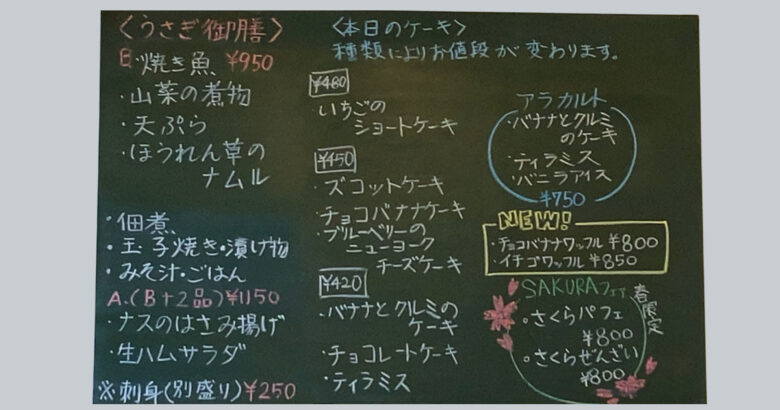 〈うさぎ御膳〉
B 焼き魚 ¥950
・山菜の煮物
・天ぷら
・ほうれん草の
ナムル
・佃煮
・玉子焼き・漬け物
・みそ汁・ごはん
A.(B+2品)¥1150
・ナスのはさみ揚げ
・生ハムサラダ
※刺身(別盛り)¥250
〈本日のケーキ〉
種類によりお値段が変わります。
¥480
・いちごの
ショートケーキ
¥450
・ズコットケーキ
・チョコバナナケーキ
・ブルーベリーの
ニューヨーク
チーズケーキ
¥420
・バナナとクルミの
ケーキ
・チョコレートケーキ
・ティラミス
アラカルト
・バナナとクルミ
のケーキ
・ティラミス
・バニラアイス
¥750
NEW!
・チョコバナナワッフル ¥800
・イチゴワッフル ¥850
SAKURAフェア
春限定
・さくらパフェ
¥800
・さくらぜんざい
¥800